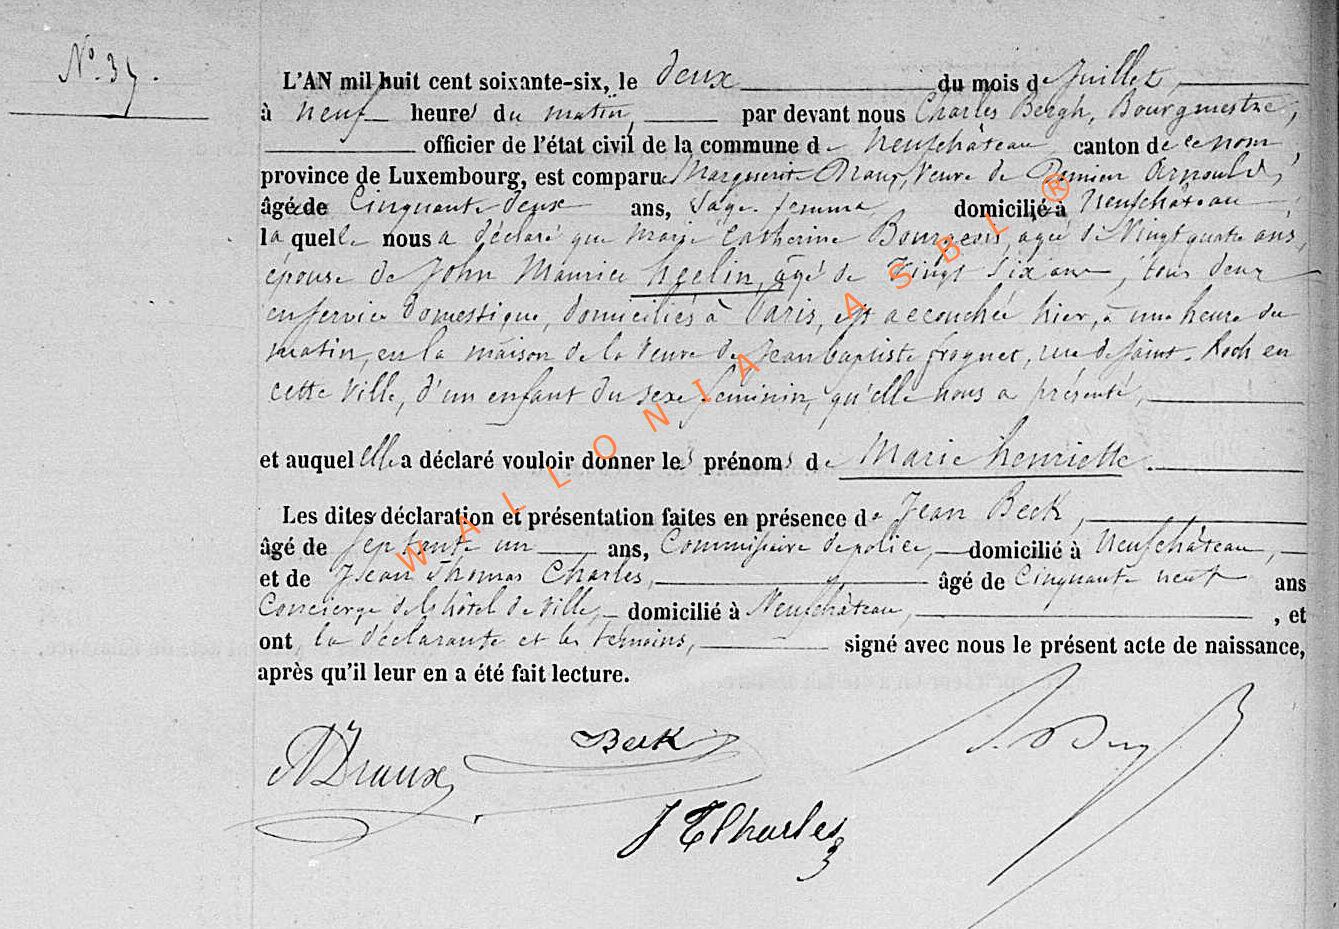 N° 37.
L'AN mil huit cent soixante-six, le deux du mois de Juillet,
à neuf heures du matin, par devant nous Charles Bergh, Bourgmestre,
officier de l'état civil de la commune de Neufchâteau canton de ce nom,
province de Luxembourg, est comparue Marguerite Draux, Veuve de Damien Arnould,
âgée de Cinquante deux ans, Sage-femme, domiciliée à Neufchâteau,
laquelle nous a déclaré que Marie Catherine Bourgeois, agée de Vingt quatre ans,
épouse de John Maurice heelin, âgé de Vingt Six ans, tous deux
en service Domestique, domiciliés à Paris, est accouchée hier, à une heure du
matin, en la maison de la Veuve de Jean baptiste frognet, rue de Saint-Roch en
cette Ville, d'un enfant du sexe féminin, qu'elle nous a présenté,
et auquel elle a déclaré vouloir donner les prénoms de Marie henriette.
Les dites déclaration et présentation faites en présence de Jean Beck,
âgé de Septante un ans, Commissaire de police, domicilié à Neufchâteau,
et de Jean Thomas Charles, âgé de Cinquante neuf ans
Concierge de l'hôtel de Ville, domicilié à Neufchâteau, et
ont la déclarante et les témoins, signé avec nous le présent acte de naissance,
après qu'il leur en a été fait lecture.
Draux
Beck
J T Charles
WALLONIA ASBL ®